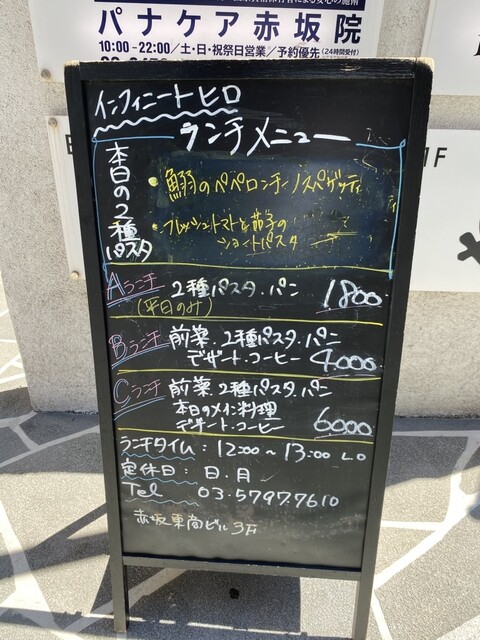 パナケア赤坂院
10:00-22:00/土・日・祝祭日営業/予約優先(24時間受付)
インフィニートヒロ
ランチメニュー
本日の2種パスタ
・鰯のペペロンチーノスパゲッティ
・フレッシュトマトと茄子の
ショートパスタ
Aランチ 2種パスタ.パン 1800
(平日のみ)
Bランチ 前菜.2種パスタ.パン
デザート.コーヒー 4.000
Cランチ 前菜.2種パスタ.パン
本日のメイン料理
デザート.コーヒー 6000
ランチタイム:12:00~13:00 L.O
定休日:日.月
Tel 03.5797.7610
赤坂東商ビル3F